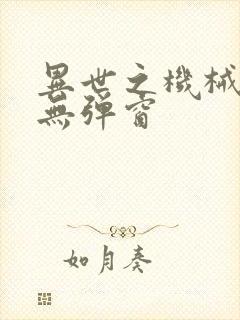 異世之機械
無彈窗
如月奏